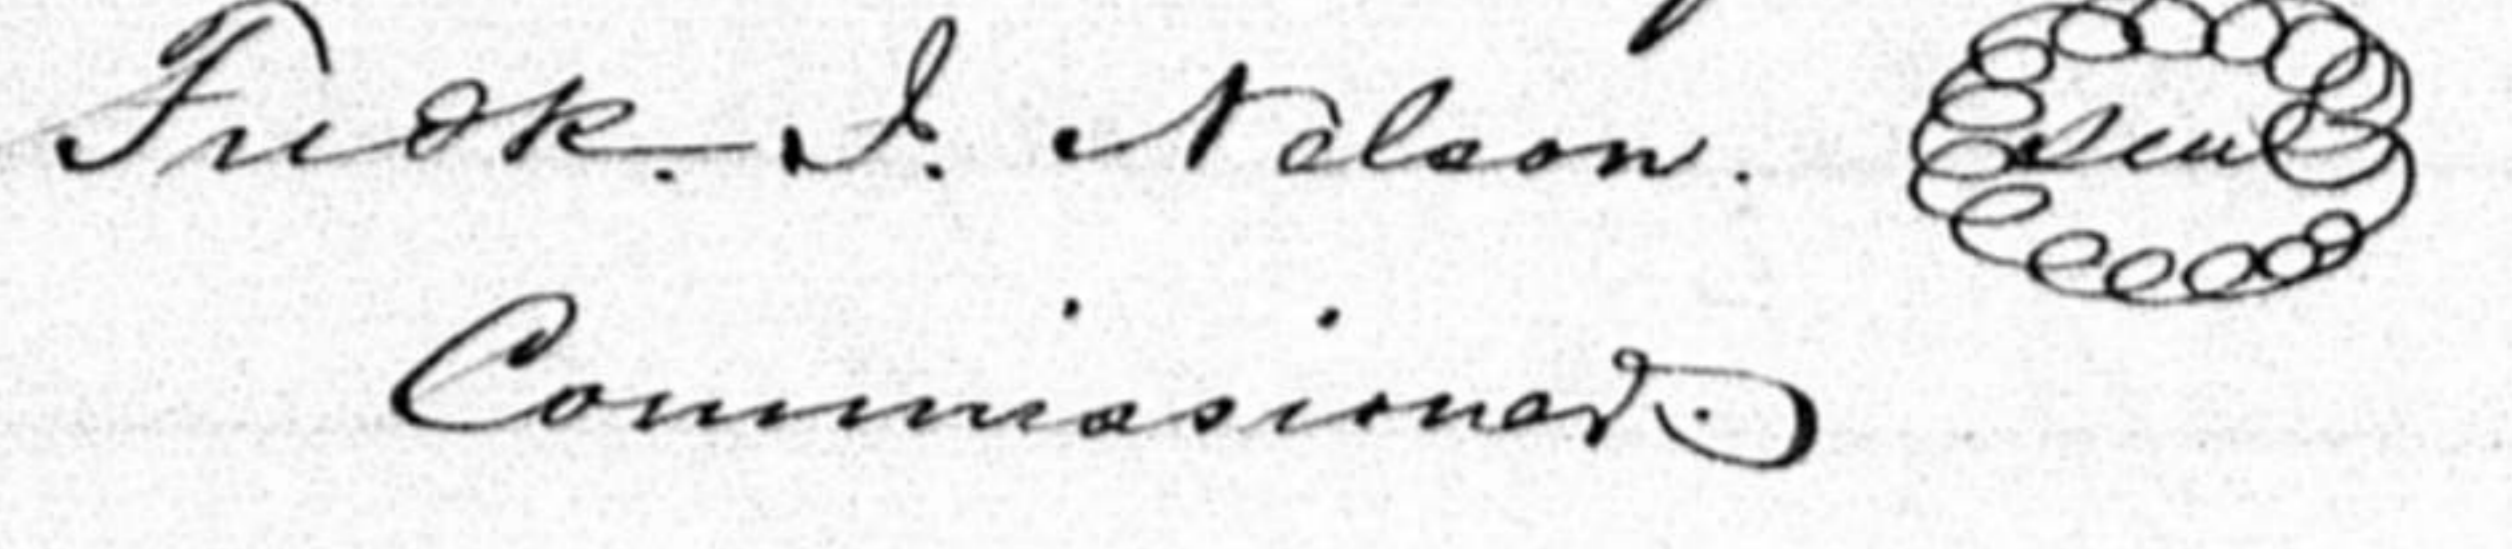 Fredk. I. Nelson. Seal
Commissioner.